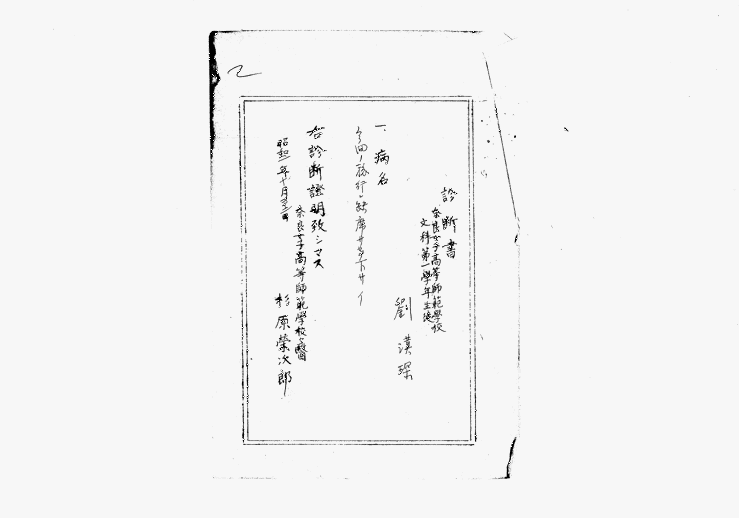 乙
診断書
奈良女子高等師範學校
文科第一學年生徒
劉漢琛
一、病名
今回ノ旅行ハ缺席サセ下サイ
右診断證明致シマス
昭和 年十月 日
奈良女子高等師範學校醫
杉原榮次郎